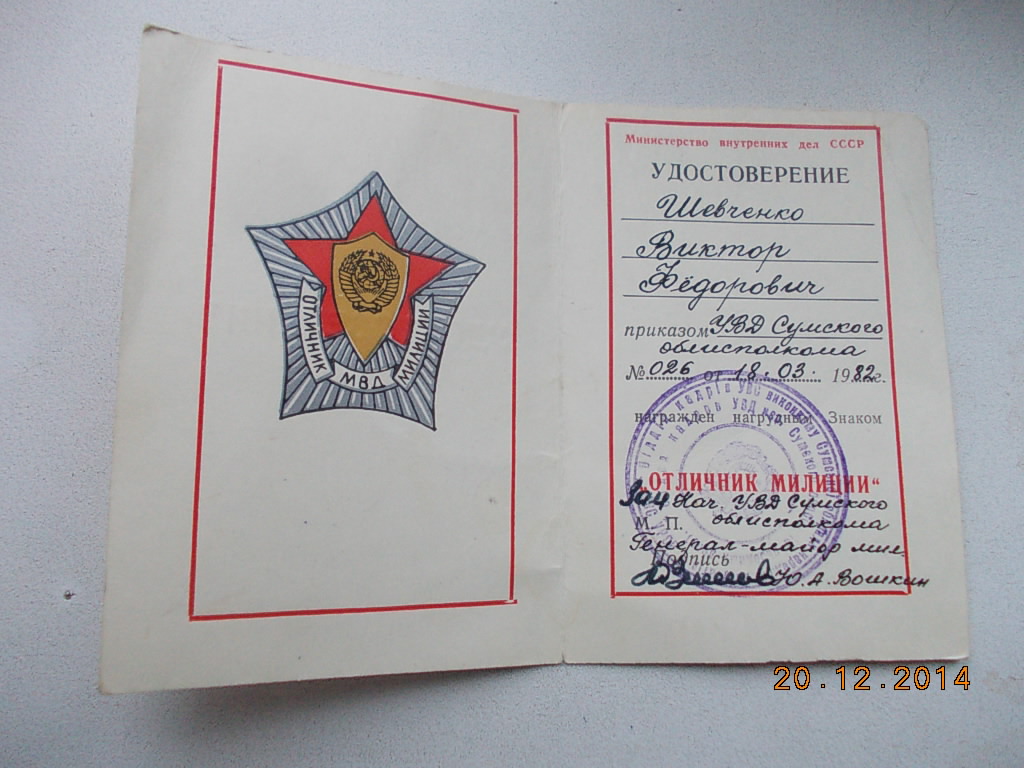 ОТЛИЧНИК
МВД
МИЛИЦИИ
Министерство внутренних дел СССР
УДОСТОВЕРЕНИЕ
Шевченко
Виктор
Фёдорович
приказом УВД Сумского
облисполкома
№ 026 от 18.03. 1982г.
награжден нагрудным Знаком
„ОТЛИЧНИК МИЛИЦИИ“
Нач. УВД Сумского
М. П. облисполкома
Генерал-майор мил.
Подпись
Ю. А. Вошкин
20.12.2014